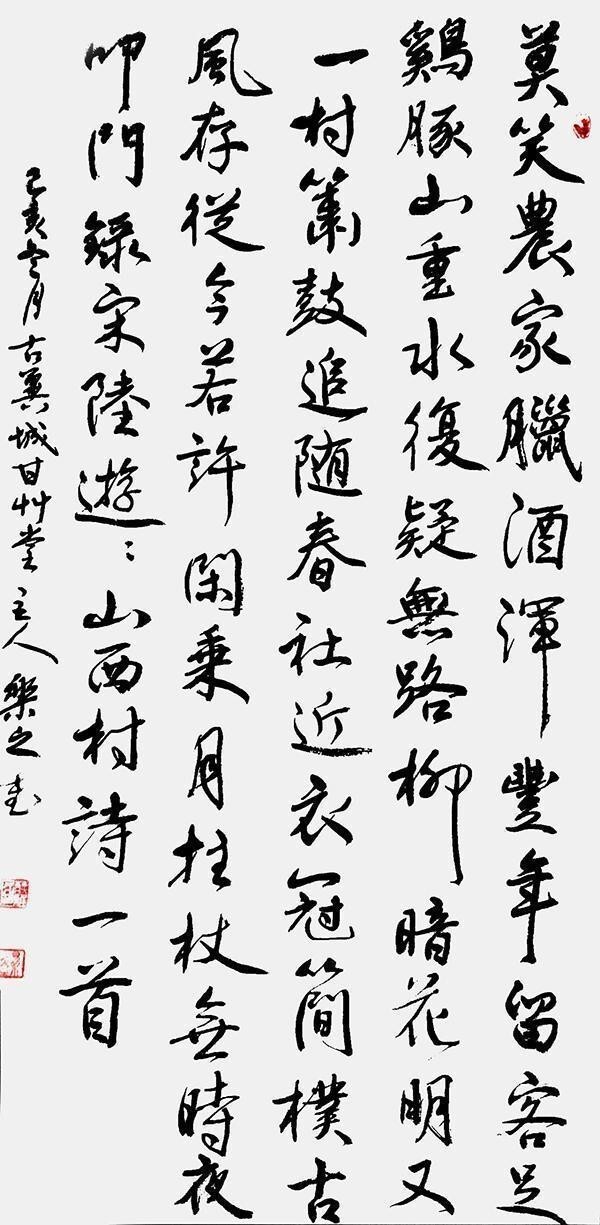 莫笑農家臘酒渾豐年留客足
鷄豚山重水復疑無路柳暗花明又
一村簫鼓追随春社近衣冠簡樸古
風存從今若許閑乗月拄杖無時夜
叩門錄宋陸遊遊山西村詩一首
己亥冬月古翼城甘艸堂主人樂之書